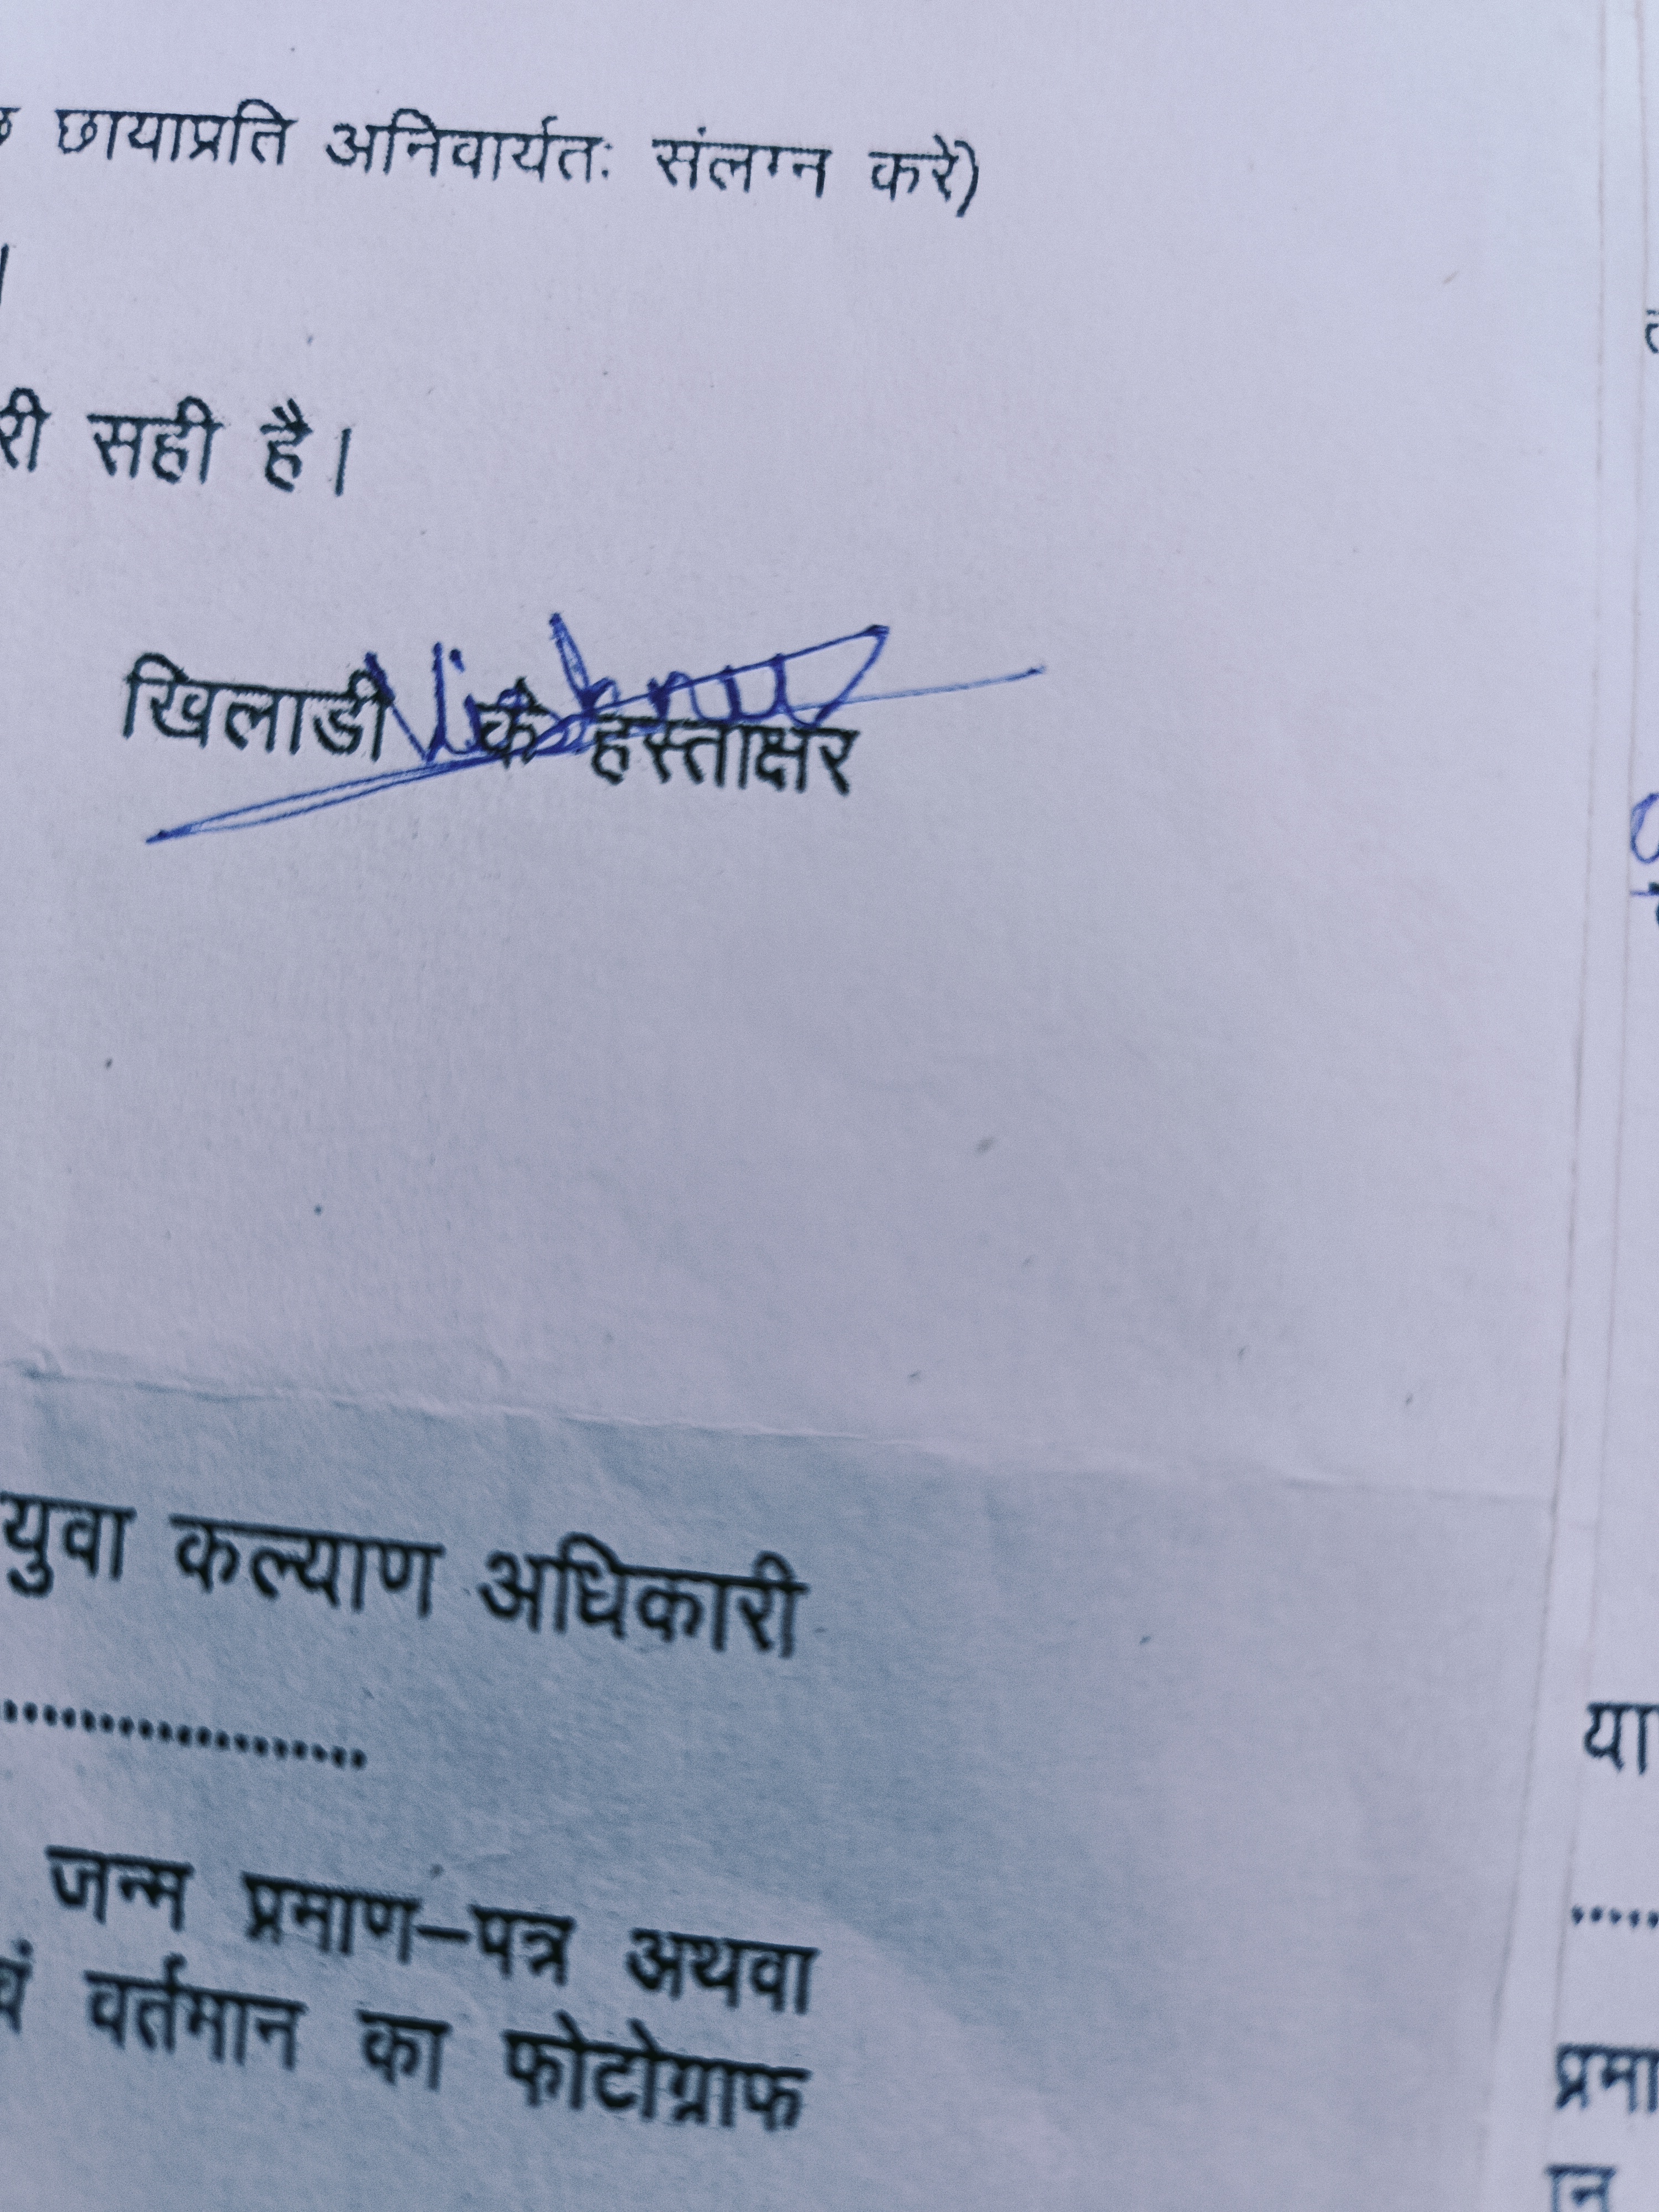 छायाप्रति अनिवार्यतः संलग्न करें)
।
री सही है।
Vishnu
खिलाडी के हस्ताक्षर
युवा कल्याण अधिकारी
..................
जन्म प्रमाण–पत्र अथवा
वं वर्तमान का फोटोग्राफ
या
.....
प्रमा